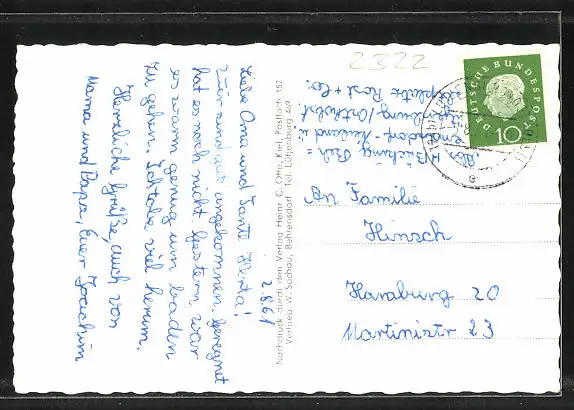 2322
DEUTSCHE BUNDESPOST
10
2.8.61
Liebe Oma und Tante Herta!
Wir sind gut angekommen. Geregnet
hat es noch nicht. Gestern war
es warm genug um baden
zu gehen. Ich tobe viel herum.
Herzliche Grüße, auch von
Mama und Papa, Euer Joachim
Nachdruck durch den Verlag Heinr. C. Otto, Kiel, Postfach 152
Vertrieb W. Sachau, Behrensdorf Tel. Lütjenburg 469
Abs. H. Hinsch
Behrensdorf - Neuland ü.
Lütjenburg/Ostholst.
An Familie
Hinsch
Hamburg 20
Martinistr 23